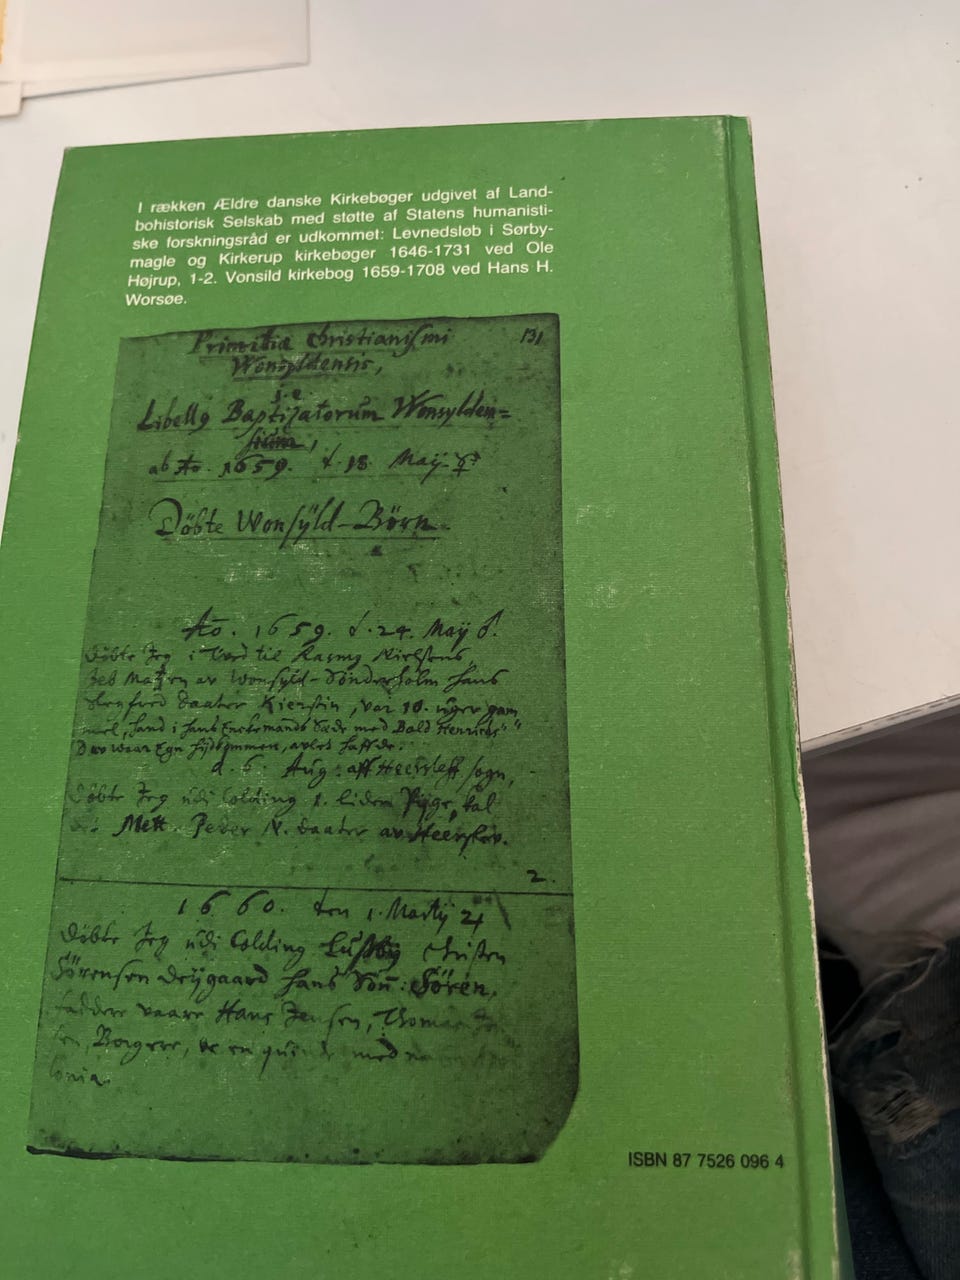 I rækken Ældre danske Kirkebøger udgivet af Land-
bohistorisk Selskab med støtte af Statens humanisti-
ske forskningsråd er udkommet: Levnedsløb i Sørby-
magle og Kirkerup kirkebøger 1646-1731 ved Ole
Højrup, 1-2. Vonsild kirkebog 1659-1708 ved Hans H.
Worsøe.
131
Primitiæ Christianismi
Wonsyldensis,
i.e.
Baptizatorum Wonsylden=
sium,
ab Ao. 1659. d. 18. Maij.
Döbte Wonsÿld-Börn.
Ao. 1659. d. 24. Maÿ
Döbte Jeg i til Rasmg Nielsens
av Wonsÿld-Sönderholm hans
daater Kierstin, var 10. uger gam
mel, hans med Bold Henrichs
d. 6. Aug: aff Heersleff sogn,
Döbte Jeg udi Colding 1. liden Pige, kal
Mett. Peder N. daater av Heerslev.
2.
1660. den 1. Martÿ
Döbte Jeg udi Colding Christen
Sörensen hans Sön: Sören,
vaare Hans Jensen, Thomas
Borgere, oc en med
lonia.
ISBN 87 7526 096 4